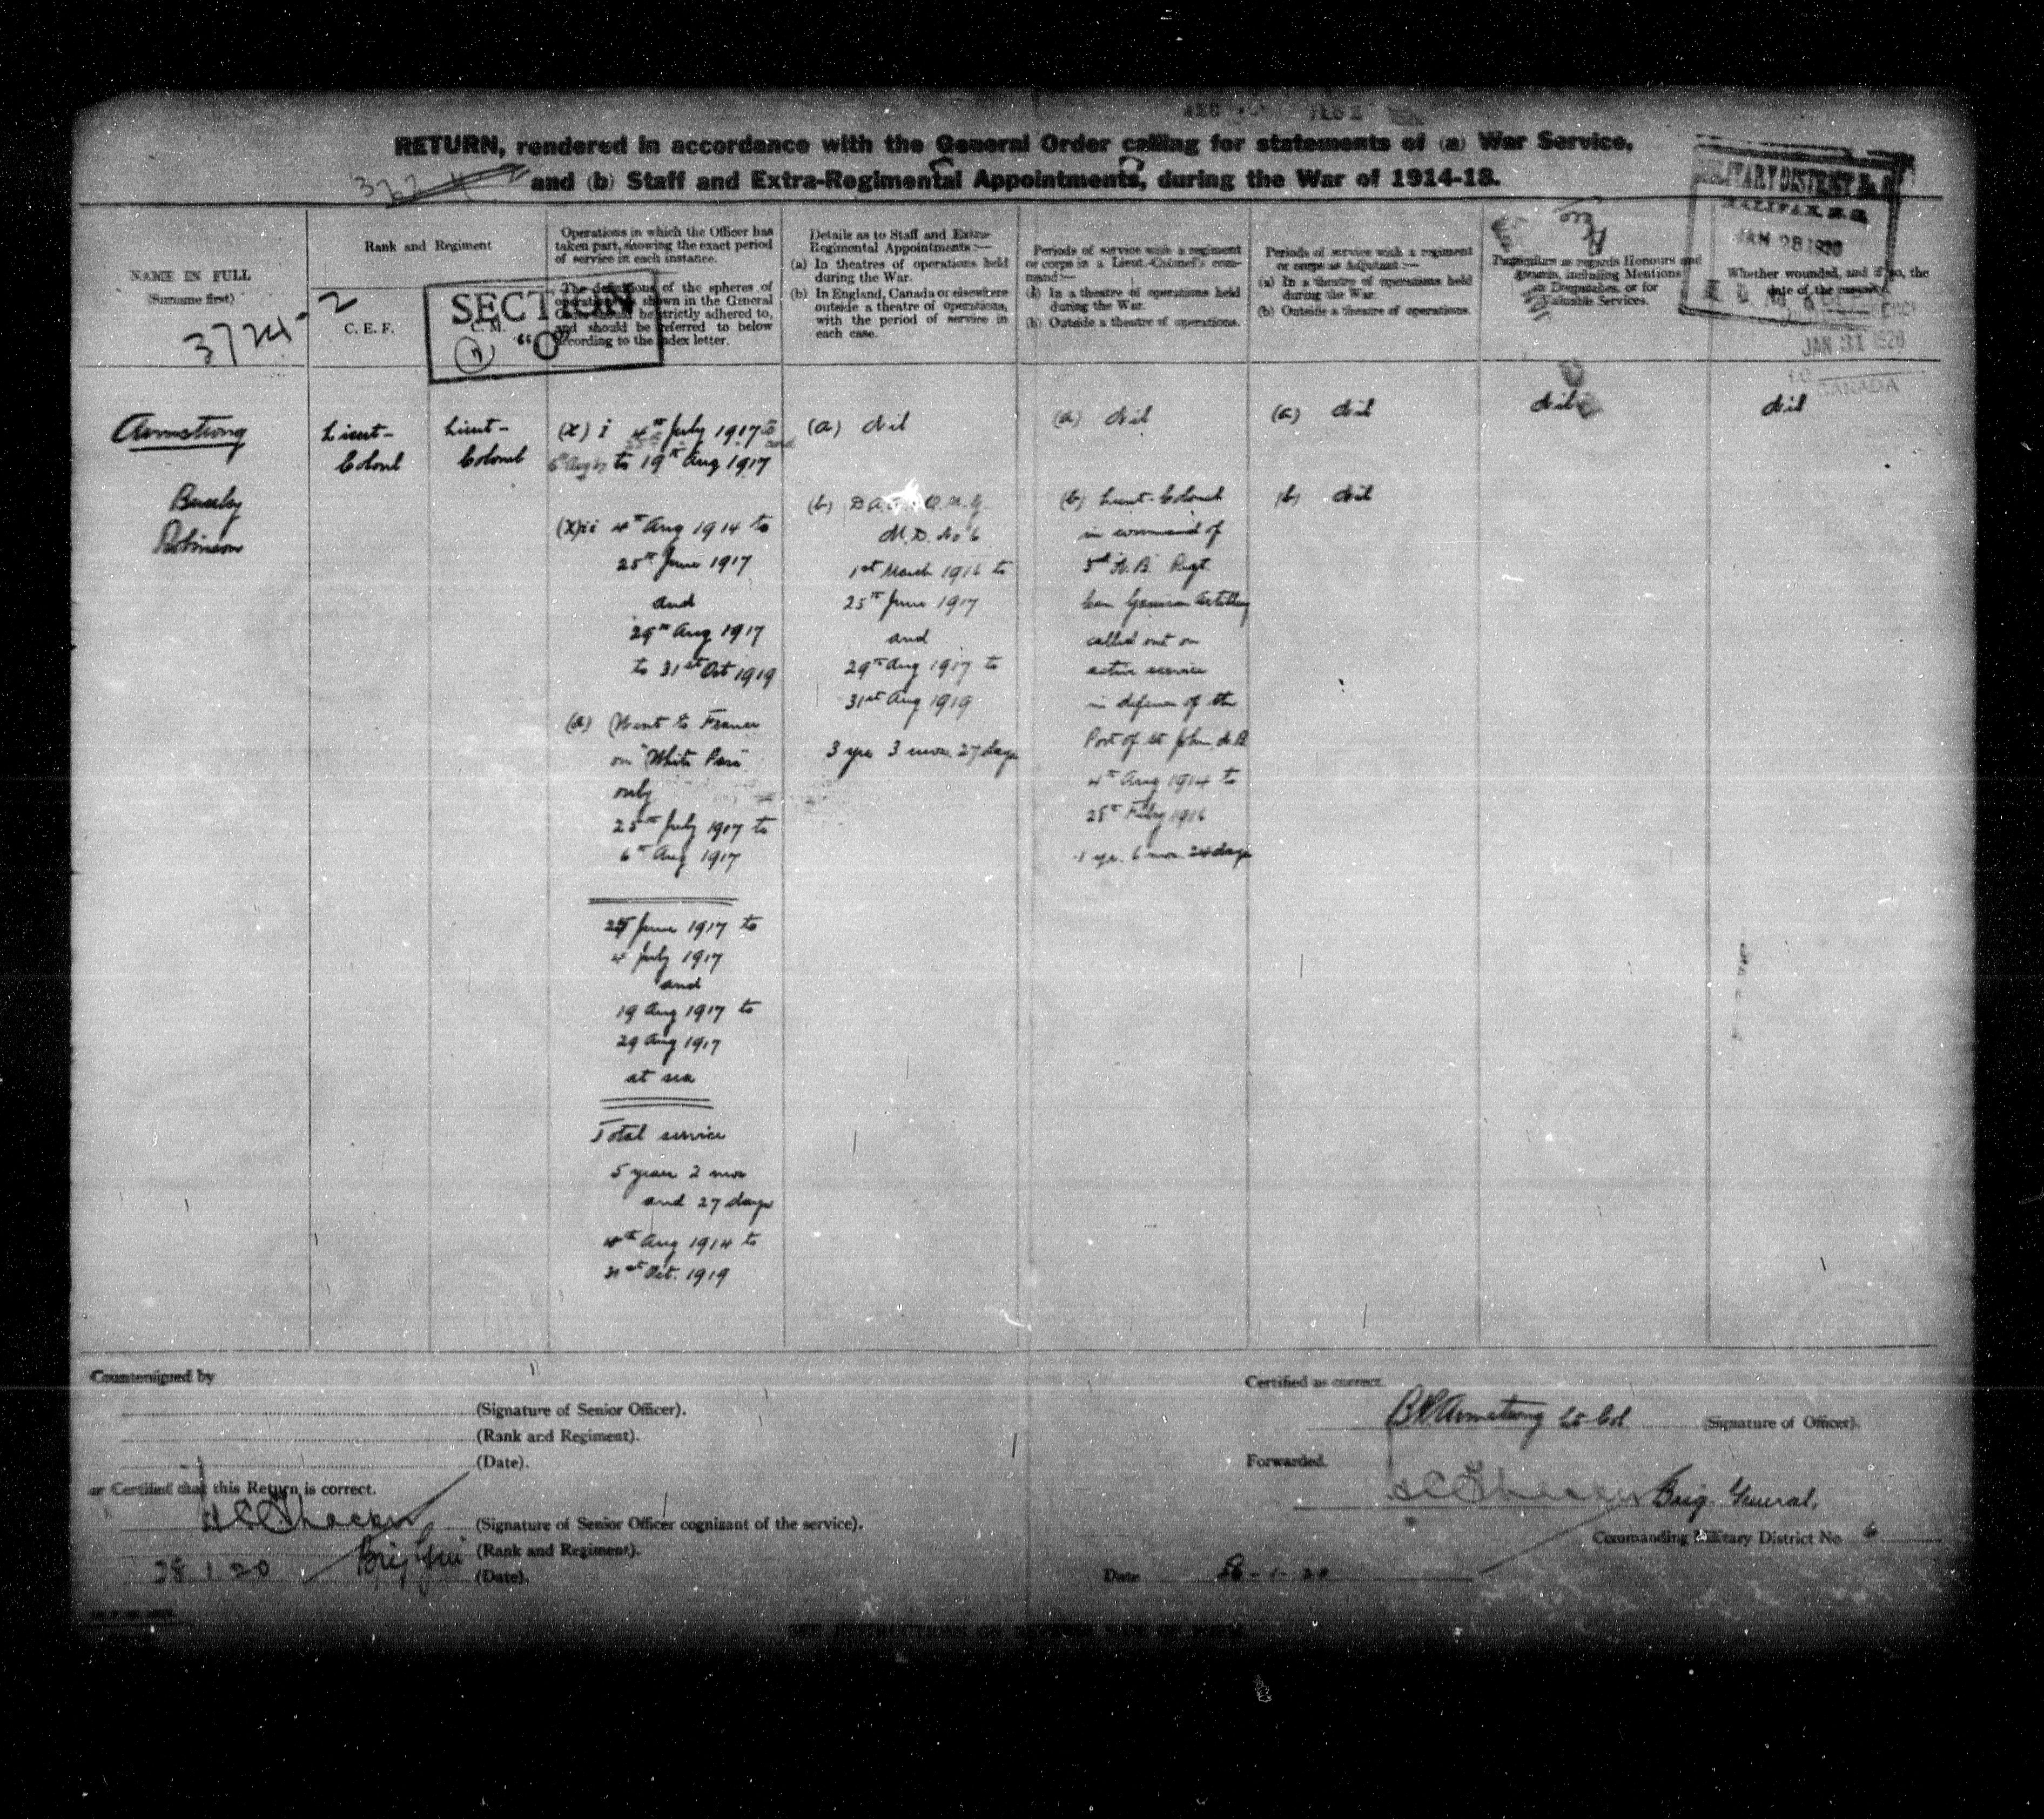 RETURN, rendered in accordance with the General Order calling for statements of (a) War Service,
and (b) Staff and Extra-Regimental Appointments, during the War of 1914-18.
MILITARY DISTRICT No. 6
HALIFAX, N.S.
JAN 28 1920
JAN 31 1920
CANADA
NAME IN FULL
(Surname first)
3724-2
Rank and Regiment
C. E. F.
C. M.
SECTION
"O"
Operations in which the Officer has
taken part, showing the exact period
of service in each instance.
The definitions of the spheres of
operations shown in the General
Order should be strictly adhered to,
and should be referred to below
according to the index letter.
Details as to Staff and Extra-
Regimental Appointments:—
(a) In theatres of operations held
during the War.
(b) In England, Canada or elsewhere
outside a theatre of operations,
with the period of service in
each case.
Periods of service with a regiment
or corps in a Lieut.-Colonel's com-
mand:—
(a) In a theatre of operations held
during the War.
(b) Outside a theatre of operations.
Periods of service with a regiment
or corps as Adjutant:—
(a) In a theatre of operations held
during the War.
(b) Outside a theatre of operations.
Particulars as regards Honours and
Rewards, including Mentions
in Despatches, or for
Valuable Services.
Whether wounded, and if so, the
date of the casualty.
Armstrong
Beverley
Robinson
Lieut-
Colonel
Lieut-
Colonel
(X) i 4th July 1917 to
25th
and
6th Aug 17 to 19th Aug 1917
(X) ii 4th Aug 1914 to
25th June 1917
and
29th Aug 1917
to 31st Oct 1919
(a) (Went to France
on "White Pass"
only
25th July 1917 to
6th Aug 1917
25 June 1917 to
4 July 1917
and
19 Aug 1917 to
29 Aug 1917
at sea
Total service
5 years 2 mos
and 27 days
4th Aug 1914 to
31st Oct. 1919
(a) Nil
(b) D.A.A. Q.M.G.
M.D. No 6
1st March 1916 to
25th June 1917
and
29th Aug 1917 to
31st Aug 1919
3 yrs 3 mos. 27 days
(a) Nil
(b) Lieut-Colonel
in command of
3rd N.B. Regt.
Can Garrison Artillery
called out on
active service
in defence of the
Port of St John N.B
4th Aug 1914 to
28th Feby 1916
1 yr. 6 mos. 24 days
(a) Nil
(b) Nil
Nil
Nil
Countersigned by
(Signature of Senior Officer).
(Rank and Regiment).
(Date).
or Certified that this Return is correct.
(Signature of Senior Officer cognizant of the service).
Brig Gen (Rank and Regiment).
28 1 20 (Date).
Certified as correct.
BR Armstrong Lt Col (Signature of Officer).
Forwarded.
Brig. General,
Commanding Military District No 6
Date 28-1-20
SEE INSTRUCTIONS ON REVERSE SIDE OF FORM